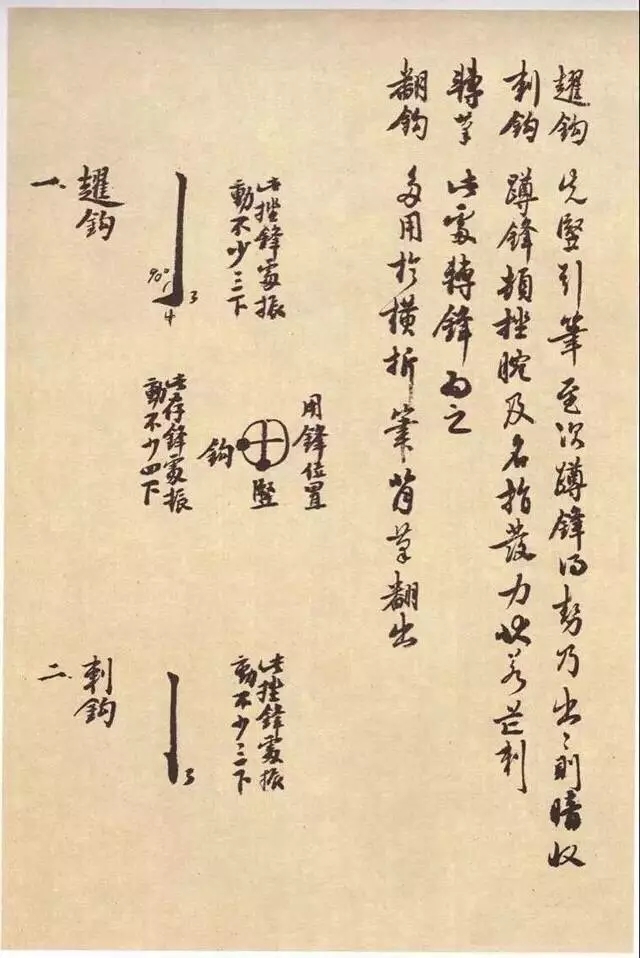 趯鈎 先竪引筆至次蹲鋒得勢乃出〻則暗收
刺鈎 蹲鋒頓挫腕及名指發力狀若芒刺
轉筆 此處轉鋒為之
翻鈎 多用於橫折筆背筆翻出
一、趯鈎
90°
3
4
此挫鋒處振
動不少三下
用鋒位置
竪
鈎
此存鋒處振
動不少四下
二、刺鈎
3
此挫鋒處振
動不少三下